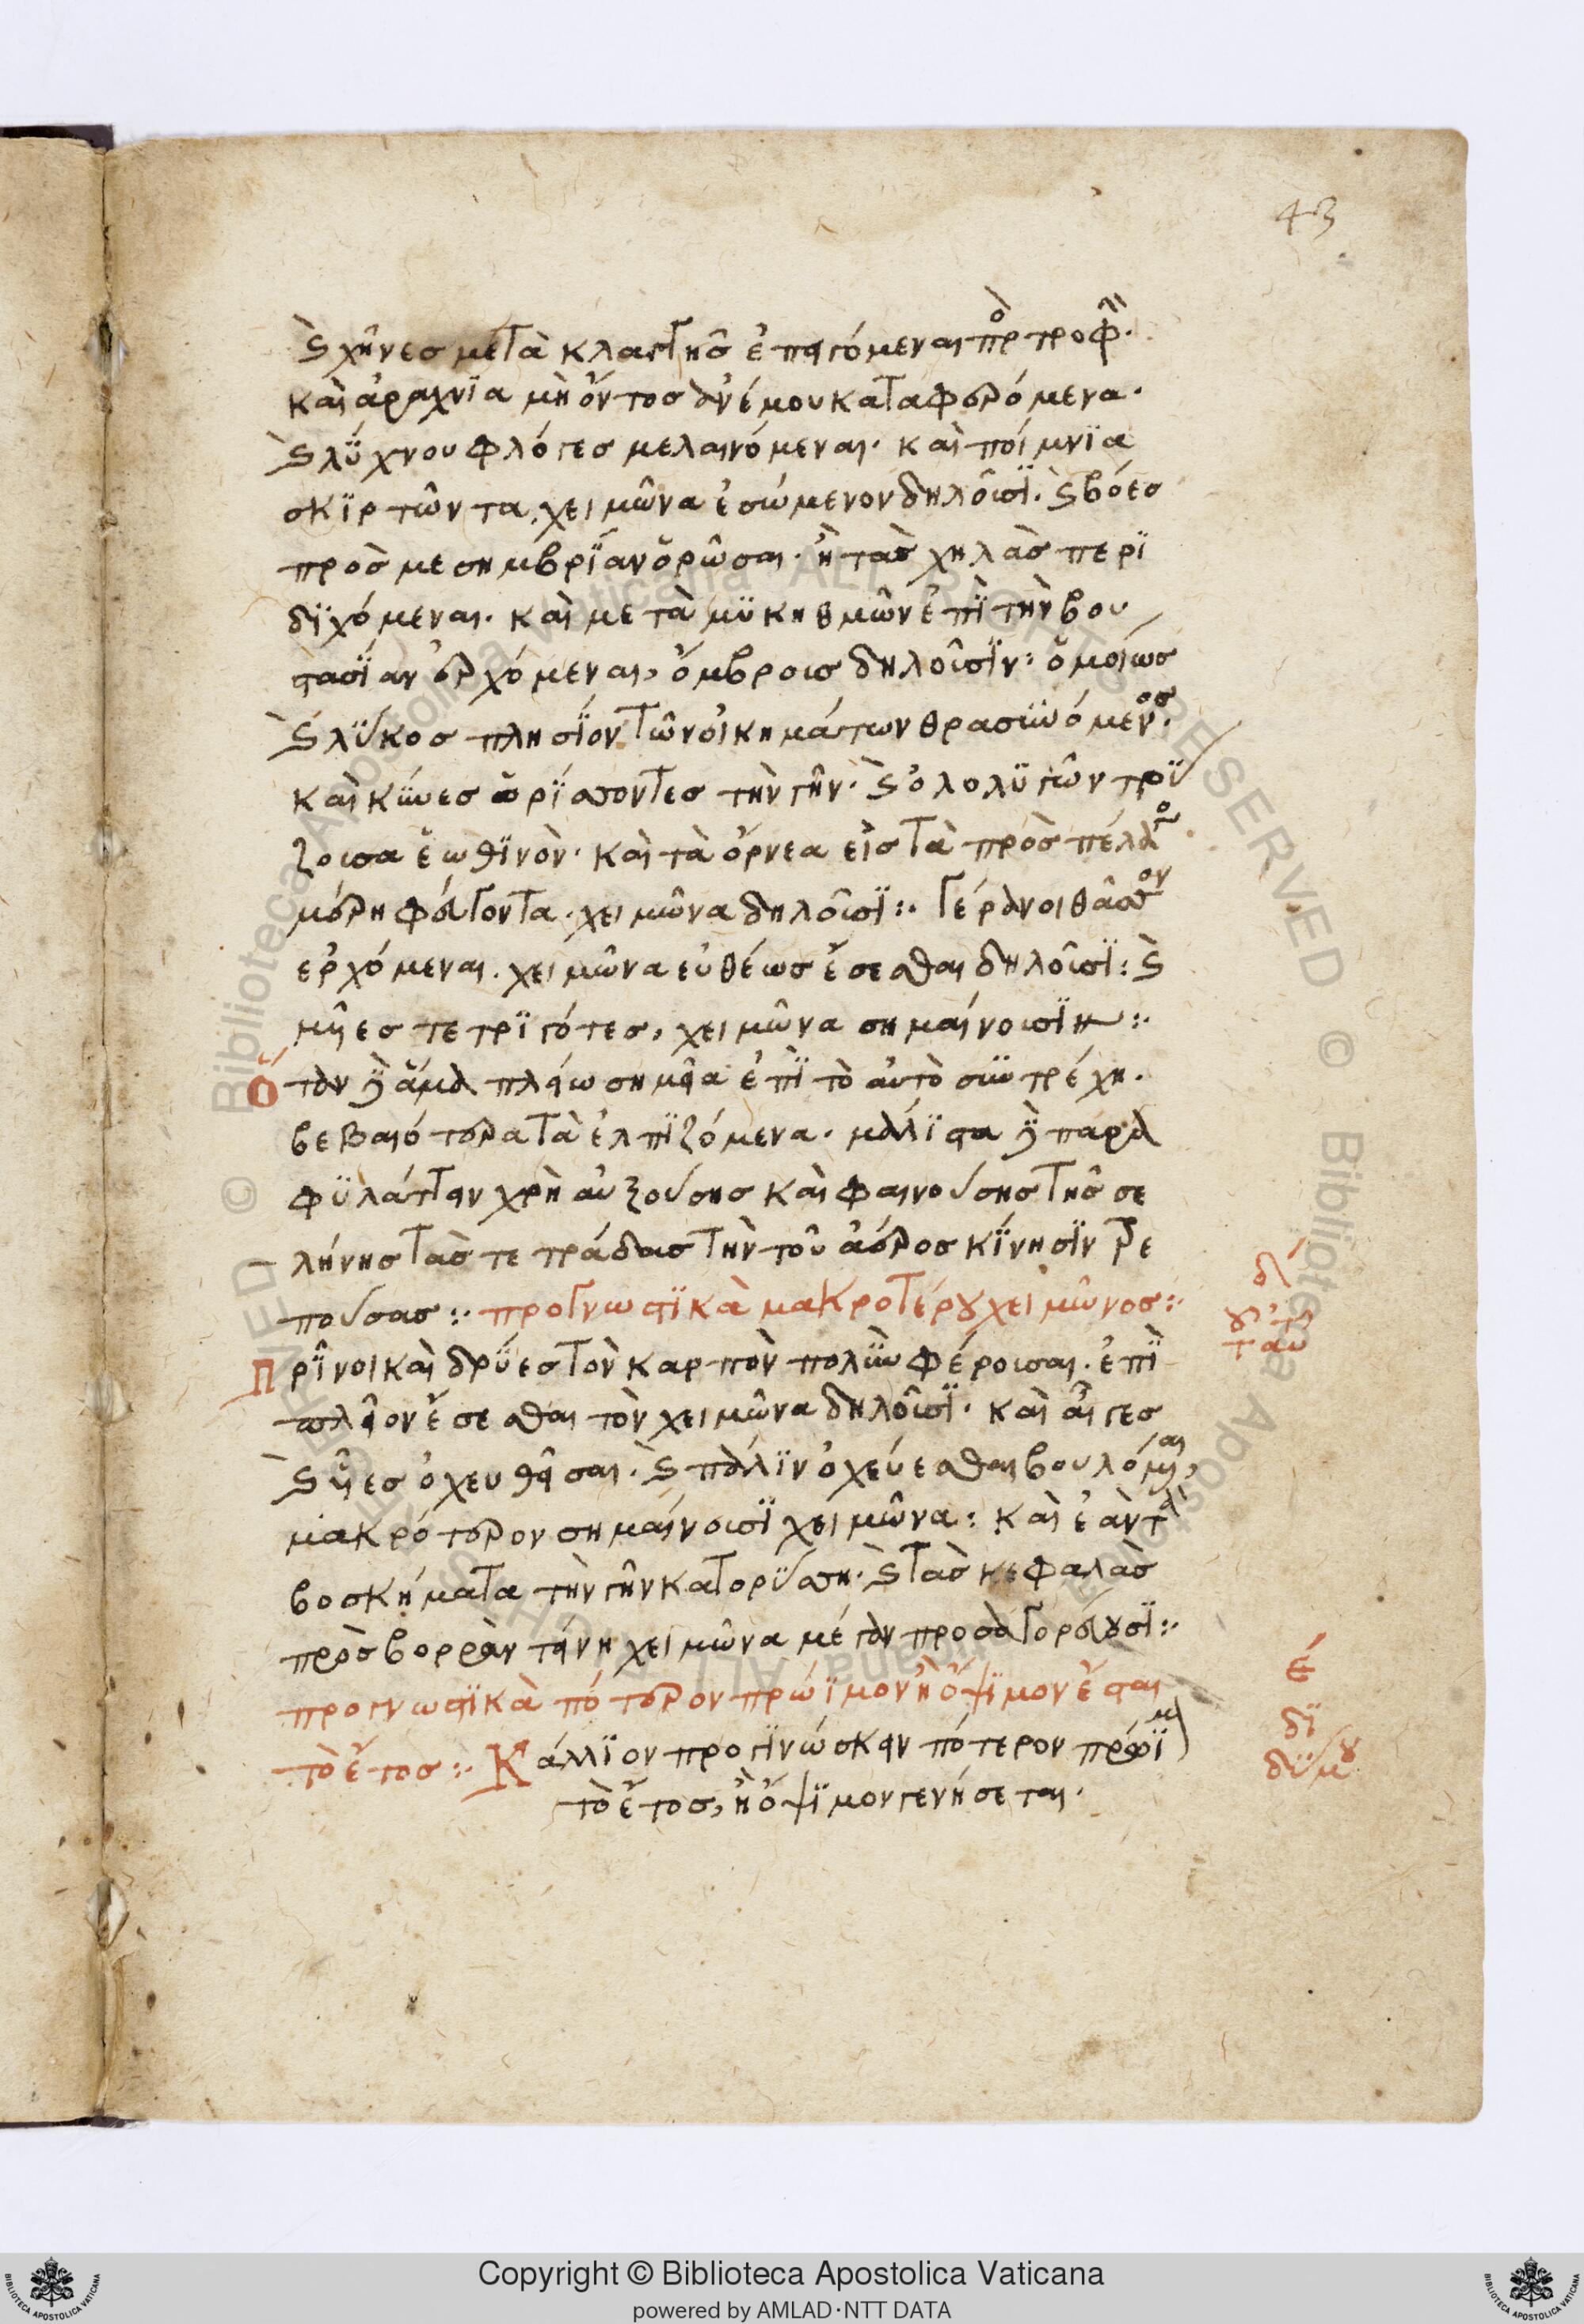 43
Ϛ χῆνες μετὰ κλαγγῆς ἐπειγόμεναι πρὸς τροφήν·
καὶ ἀράχνϊα μὴ ὄντος ἀνέμου καταφερόμενα·
Ϛ λύχνου φλόγες μελαινόμεναι· καὶ ποίμνϊα
σκϊρτῶντα, χειμῶνα ἐσώμενον δηλοῦσϊ· Ϛ βόες
πρὸς μεσημβρΐαν ὁρῶσαι· ἢ τὰς χηλὰς περϊ
δϊχόμεναι· καὶ μετὰ μϋκηθμῶν ἐπῒ τὴν βου
στασΐαν ἐρχόμεναι, ὄμβρους δηλοῦσϊν: ὁμοίως
Ϛ λΰκος πλησΐον τῶν οἰκημάτων θρασϋνόμενος·
καὶ κΰνες ὀρΰσσοντες τὴν γῆν· Ϛ ὀλολϋγὼν τρΰ
ζουσα ἑωθϊνὸν· καὶ τὰ ὄρνεα εἰς τὰ πρὸς πέλαγος
μέρη φεύγοντα· χειμῶνα δηλοῦσϊ:· Γέρανοι θᾶττον
ερχόμεναι· χειμῶνα εὐθέως ἔσεσθαι δηλοῦσϊ: Ϛ
μῦες τετρϊγότες, χειμῶνα σημαίνουσϊν:·
Ὅταν δὲ ἅμα πλείω σημεῖα ἐπῒ τὸ αὐτὸ συντρέχη·
βεβαιότερα τὰ ἐλπϊζόμενα· μάλϊστα δὲ παρα
φϋλάττειν χρὴ αὐξούσης καὶ φαινούσης τῆς σε
λήνης τὰς τετράδας τὴν τοῦ ἀέρος κΐνησϊν τρε
πούσας:· προγνωστϊκὰ μακροτέρου χειμῶνος:·
δ΄
Πρῖνοι καὶ δρΰες τὸν καρπὸν πολὺν φέρουσαι· ἐπῒ
πλεῖον ἔσεσθαι τὸν χειμῶνα δηλοῦσϊ· καὶ αἶγες
Ϛ ὗες ὀχευθεῖσαι· Ϛ πάλϊν ὀχεύεσθαι βουλόμεναι,
μακρότερον σημαίνουσϊ χειμῶνα: καὶ ἐὰν τὰ
βοσκήματα τὴν γῆν κατορΰσση· Ϛ τὰς κεφαλὰς
πρὸς βορρὰν τείνη χειμῶνα μέγαν προσαγορεύουσϊ:·
προγνωστϊκὰ πότερον πρώϊμον ἢ ὄψϊμον ἔσται
τὸ ἔτος:· Κάλλϊον προγϊνώσκειν πότερον πρώϊμ
τὸ ἔτος, ἢ ὄψϊμον γενήσεται·
έ
δϊ
δΰμου
Copyright © Biblioteca Apostolica Vaticana
powered by AMLAD·NTT DATA